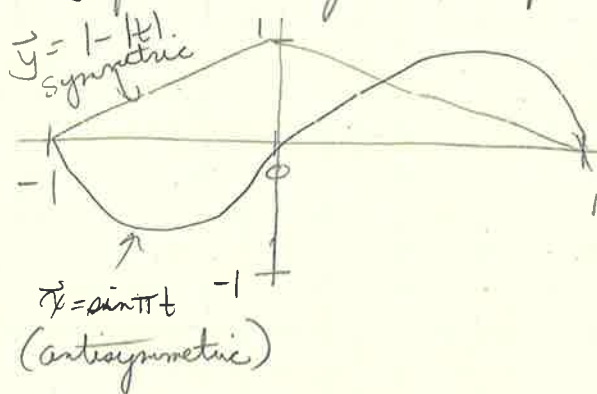 y⃗ = 1-|t|
symmetric
1
-1
0
1
x⃗ = sin πt
-1
(antisymmetric)